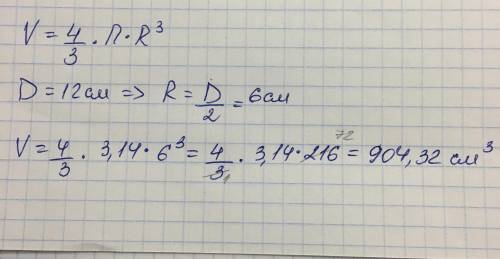 V = 4/3 · П · R³
D = 12 см => R = D/2 = 6 см
V = 4/3 · 3,14 · 6³ = 4/3 · 3,14 · 216 72 = 904,32 см³